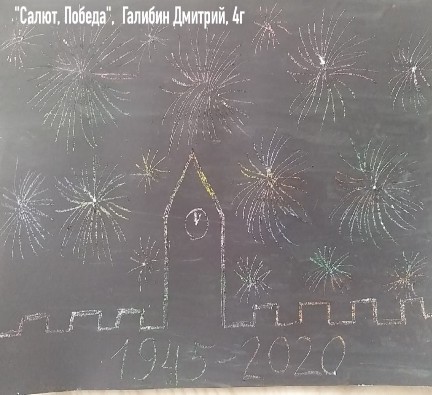 "Салют, Победа", Галибин Дмитрий, 4г
1945-2020